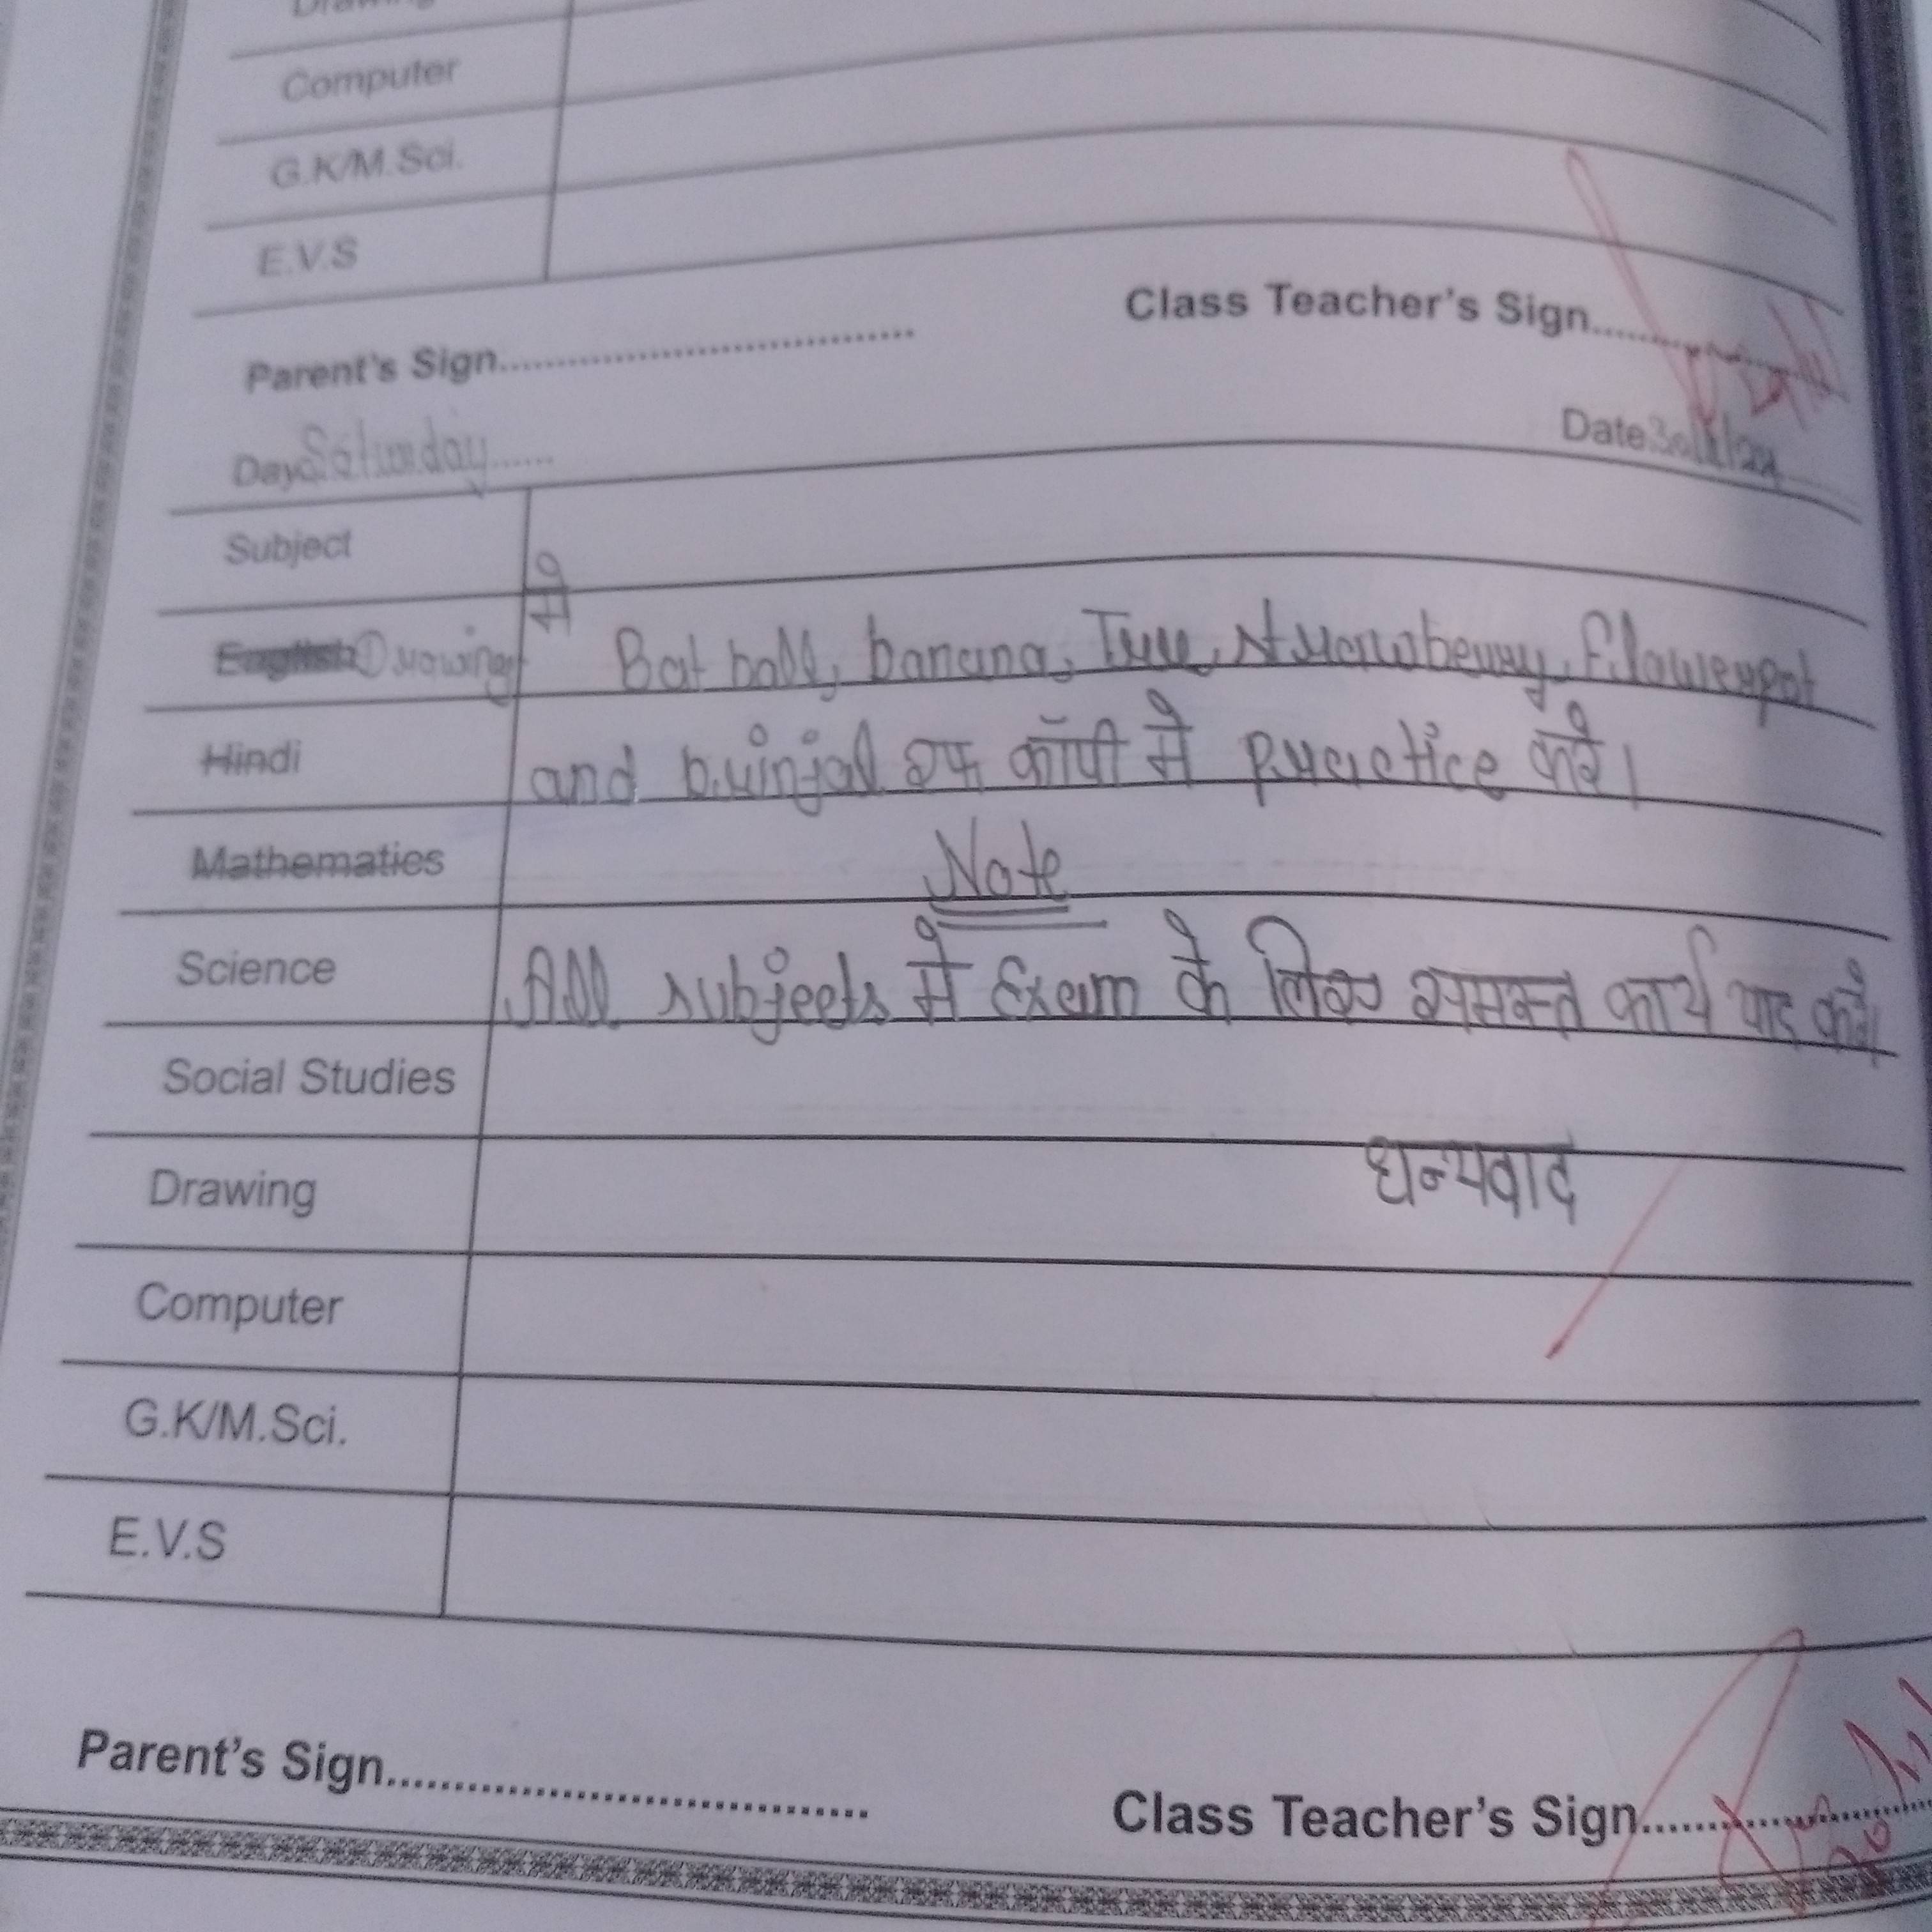 Computer
G.K/M.Sci.
E.V.S
Parent's Sign.......... Class Teacher's Sign..........
Day Saturday...... Date
Subject
English Drawing में Bat ball, banana, Tree, strawberry, flowerpot
Hindi and brinjal रफ कॉपी में practice करें।
Mathematics Note
Science All subjects में Exam के लिए समस्त कार्य याद करें।
Social Studies
Drawing धन्यवाद
Computer
G.K/M.Sci.
E.V.S
Parent's Sign.......... Class Teacher's Sign..........